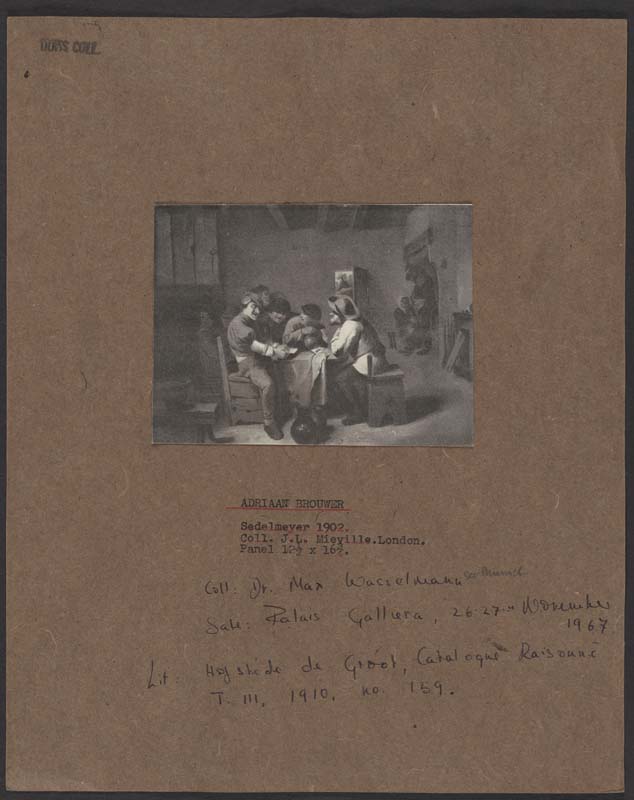 DUITS COLL.
ADRIAAN BROUWER
Sedelmeyer 1902.
Coll. J.L. Mieville.London.
Panel 12½ x 16½.
Coll: Dr. Max Wasselmann
Sale: Palais Galliera, 26-27 November
1967
Lit: Hofstede de Groot, Catalogue Raisonné
T. III, 1910, no. 159.